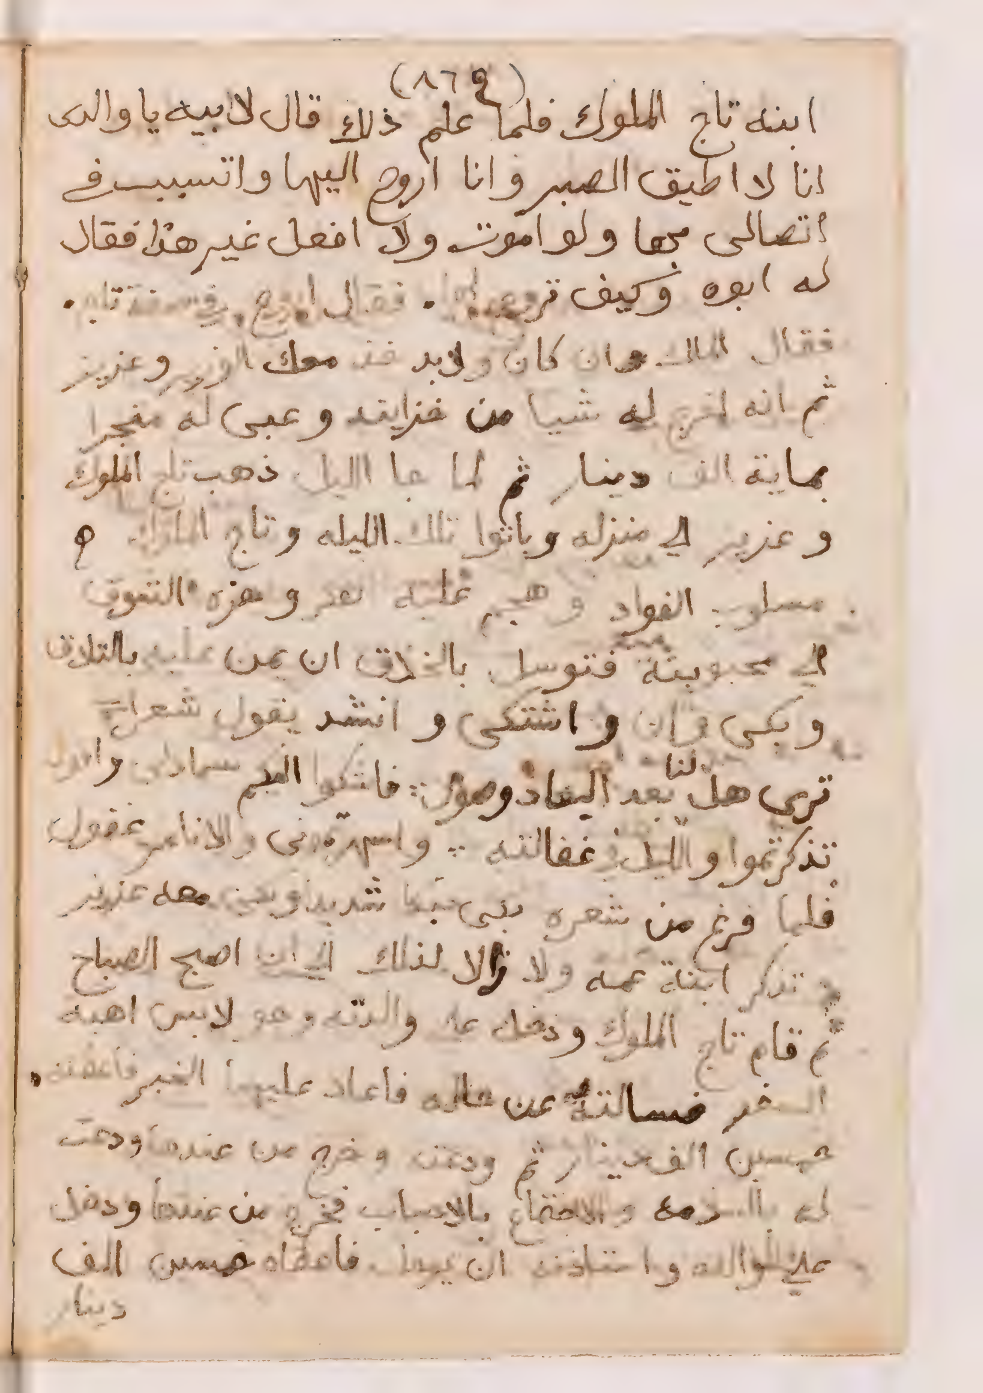 (٨٦٩)
ابنة تاج الملوك فلما علم ذلك قال لابيه يا والدى
انا لا اطيق الصبر وانا اروح اليها واتسبب فى
اتصالى بها ولو اموت ولا افعل غير هذا فقال
له ابوه وكيف تروح اليها فقال اروح فى صفة تاجر
فقال الملك وان كان ولابد فخذ معك الوزير وعزيز
ثم انه اخرج له شيا من خزاينه وعبى له متجرا
بماية الف دينار ثم لما جا الليل ذهب تاج الملوك
وعزيز الى منزله وباتوا تلك الليله وتاج الملوك
مسلوب الفواد وهجم عليه الفكر وهزه الشوق
الى محبوبته فتوسل بالخلاق ان يمن عليه بالتلاق
وبكى وان واشتكى وانشد يقول شعرا
ترى هل لنا بعد البعاد وصول فاشكوا اليكم واقول
تذكرتموا والليل فى غفالته واسهرتمونى والانام غفول
فلما فرغ من شعره بكى بكا شديدا وبكى معه عزيز
وتذكر ابنة عمه ولا زالا لذلك الى ان اصبح الصباح
ثم قام تاج الملوك ودخل على والدته وهو لابس اهبة
السفر فسالته عن حاله فاعاد عليها الخبر فاعطته
خمسين الف دينار ثم ودعته وخرج من عندها ودعت
له بالسلامه والاجتماع بالاحباب فخرج من عندها ودخل
على والده واستاذنه ان يرحل فاعطاه خمسين الف
دينار